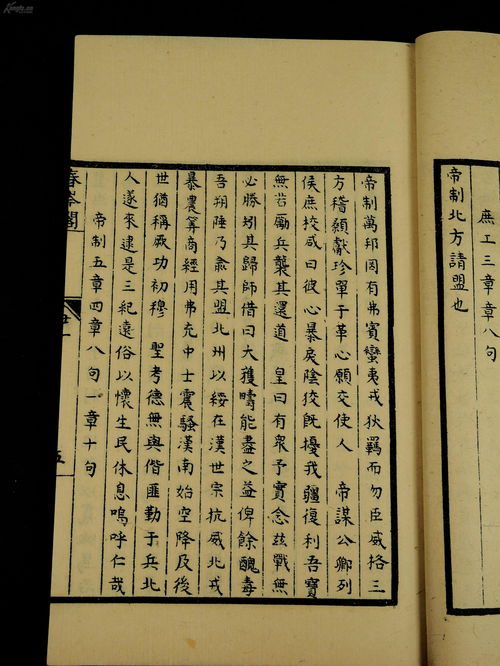 庶工三章章八句
帝制北方請盟也
帝制萬邦罔有弗賓蠻夷戎狄羈而勿臣威格三
方稽顙獻珍單于革心願交使人　帝謀公卿列
侯庶校咸曰彼心暴戾陰狡旣擾我疆復利吾寶
無若勵兵襲其還道　皇曰有衆予實念兹戰無
必勝矧其歸師借曰大獲疇能盡之益俾餘醜毒
吾朔陲乃肅其盟北州以綏在漢世宗抗威北戎
暴農筭商經用弗充中士震騷漢南始空降及後
世猶稱厥功初穆　聖考德無與偕匪勤于兵北
人遂來逮是三紀遠俗以懷生民休息嗚呼仁哉
帝制五章四章八句一章十句
春岑閣
五